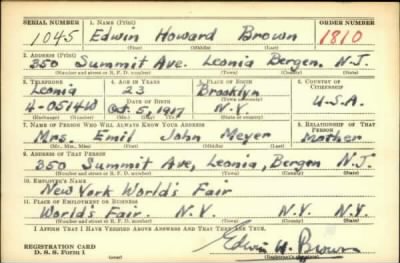 SERIAL NUMBER 1. NAME (Print) ORDER NUMBER
1045 Edwin Howard Brown 1810
(First) (Middle) (Last)
2. ADDRESS (Print)
350 Summit Ave. Leonia Bergen. N.J.
(Number and street or R. F. D. number) (Town) (County) (State)
3. TELEPHONE 4. AGE IN YEARS 5. PLACE OF BIRTH 6. COUNTRY OF CITIZENSHIP
Leonia 23 Brooklyn
DATE OF BIRTH
4-0514W Oct. 5, 1917 N.Y. U.S.A.
7. NAME OF PERSON WHO WILL ALWAYS KNOW YOUR ADDRESS 8. RELATIONSHIP OF THAT PERSON
Mrs. Emil John Meyer Mother
(Mr., Mrs., Miss) (First) (Middle) (Last)
9. ADDRESS OF THAT PERSON
350 Summit Ave, Leonia, Bergen N.J.
(Number and street or R. F. D. number) (Town) (County) (State)
10. EMPLOYER'S NAME
New York World's Fair
11. PLACE OF EMPLOYMENT OR BUSINESS
World's Fair. N.Y. N.Y. N.Y.
(Number and street or R. F. D. number) (Town) (County) (State)
I AFFIRM THAT I HAVE VERIFIED ABOVE ANSWERS AND THAT THEY ARE TRUE.
REGISTRATION CARD
D. S. S. Form 1 Edwin H. Brown
(Registrant's signature)